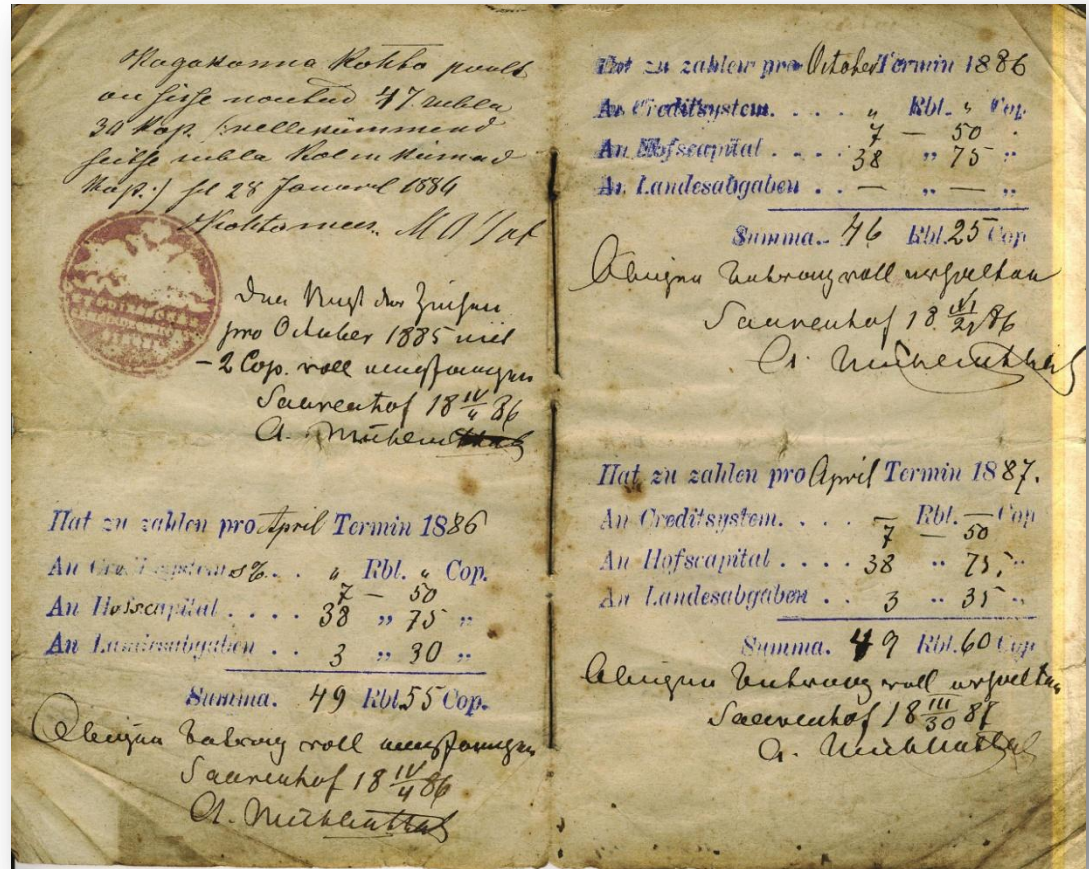 Kogokonna Kohto poolt
on sisse noutud 47. rubla
30 Kop. (: nellikümmend
seitse rubla kolmkümmend
kop:) sel 28 Januaril 1886
Kohtomees. M
Den Rest der Zinsen
pro October 1885 mit
– 2 Cop. voll empfangen
Saurenhof 18 IV/4 86
A. Mühlenthal
Hat zu zahlen pro April Termin 1886
An Creditsystem . . „ Rbl. „ Cop.
7 — 50
An Hofscapital . . . . 38 „ 75 „
An Landesabgaben . . 3 „ 30 „
Summa. 49 Rbl. 55 Cop.
Obigen Betrag voll empfangen
Saurenhof 18 IV/4 86
A. Mühlenthal
Hat zu zahlen pro October Termin 1886
An Creditsystem. . . . . „ Rbl. „ Cop.
7 — 50
An Hofscapital . . . . 38 „ 75 „
An Landesabgaben . . — „ — „
Summa. 46 Rbl. 25 Cop
Obigen Betrag voll erhalten
Saurenhof 18 86
A. Mühlenthal
Hat zu zahlen pro April Termin 1887.
An Creditsystem. . . . . — Rbl. — Cop
7 — 50
An Hofscapital . . . . . 38 „ 75, „
An Landesabgaben . . 3 „ 35 „
Summa. 49 Rbl. 60 Cop
Obigen Betrag voll erhalten
Saurenhof 18 III/30 87
A. Mühlenthal